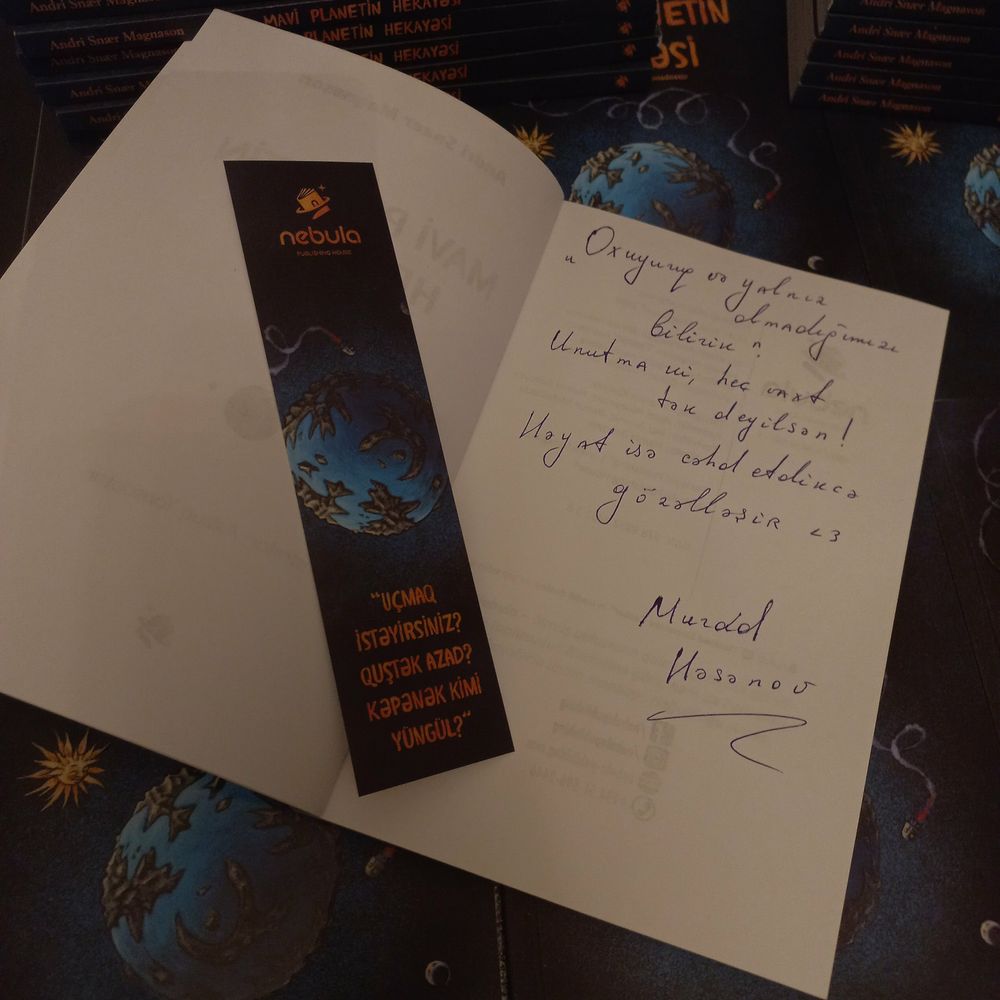 Andri Snær Magnason
MAVİ PLANETİN HEKAYƏSİ
Andri Snær Magnason
PLANETİN HEKAYƏSİ
Andri Snær Magnason
PLANETİN HEKAYƏSİ
Andri Snær Magnason
HEKAYƏSİ
Andri
ETİN
ƏSİ
Andri Snær Magnason
Andri Snær Magnason
Andri Snær Magnason
Andri Snær Magnason
Andri Snær Magnason
nebula
PUBLISHING HOUSE
"UÇMAQ
İSTƏYİRSİNİZ?
QUŞTƏK AZAD?
KƏPƏNƏK KİMİ
YÜNGÜL?"
„Oxuyuruq və yalnız
olmadığımızı
bilirik"
Unutma ki, heç vaxt
tək deyilsən!
Həyat isə cəhd etdikcə
gözəlləşir <3
Murad
Həsənov